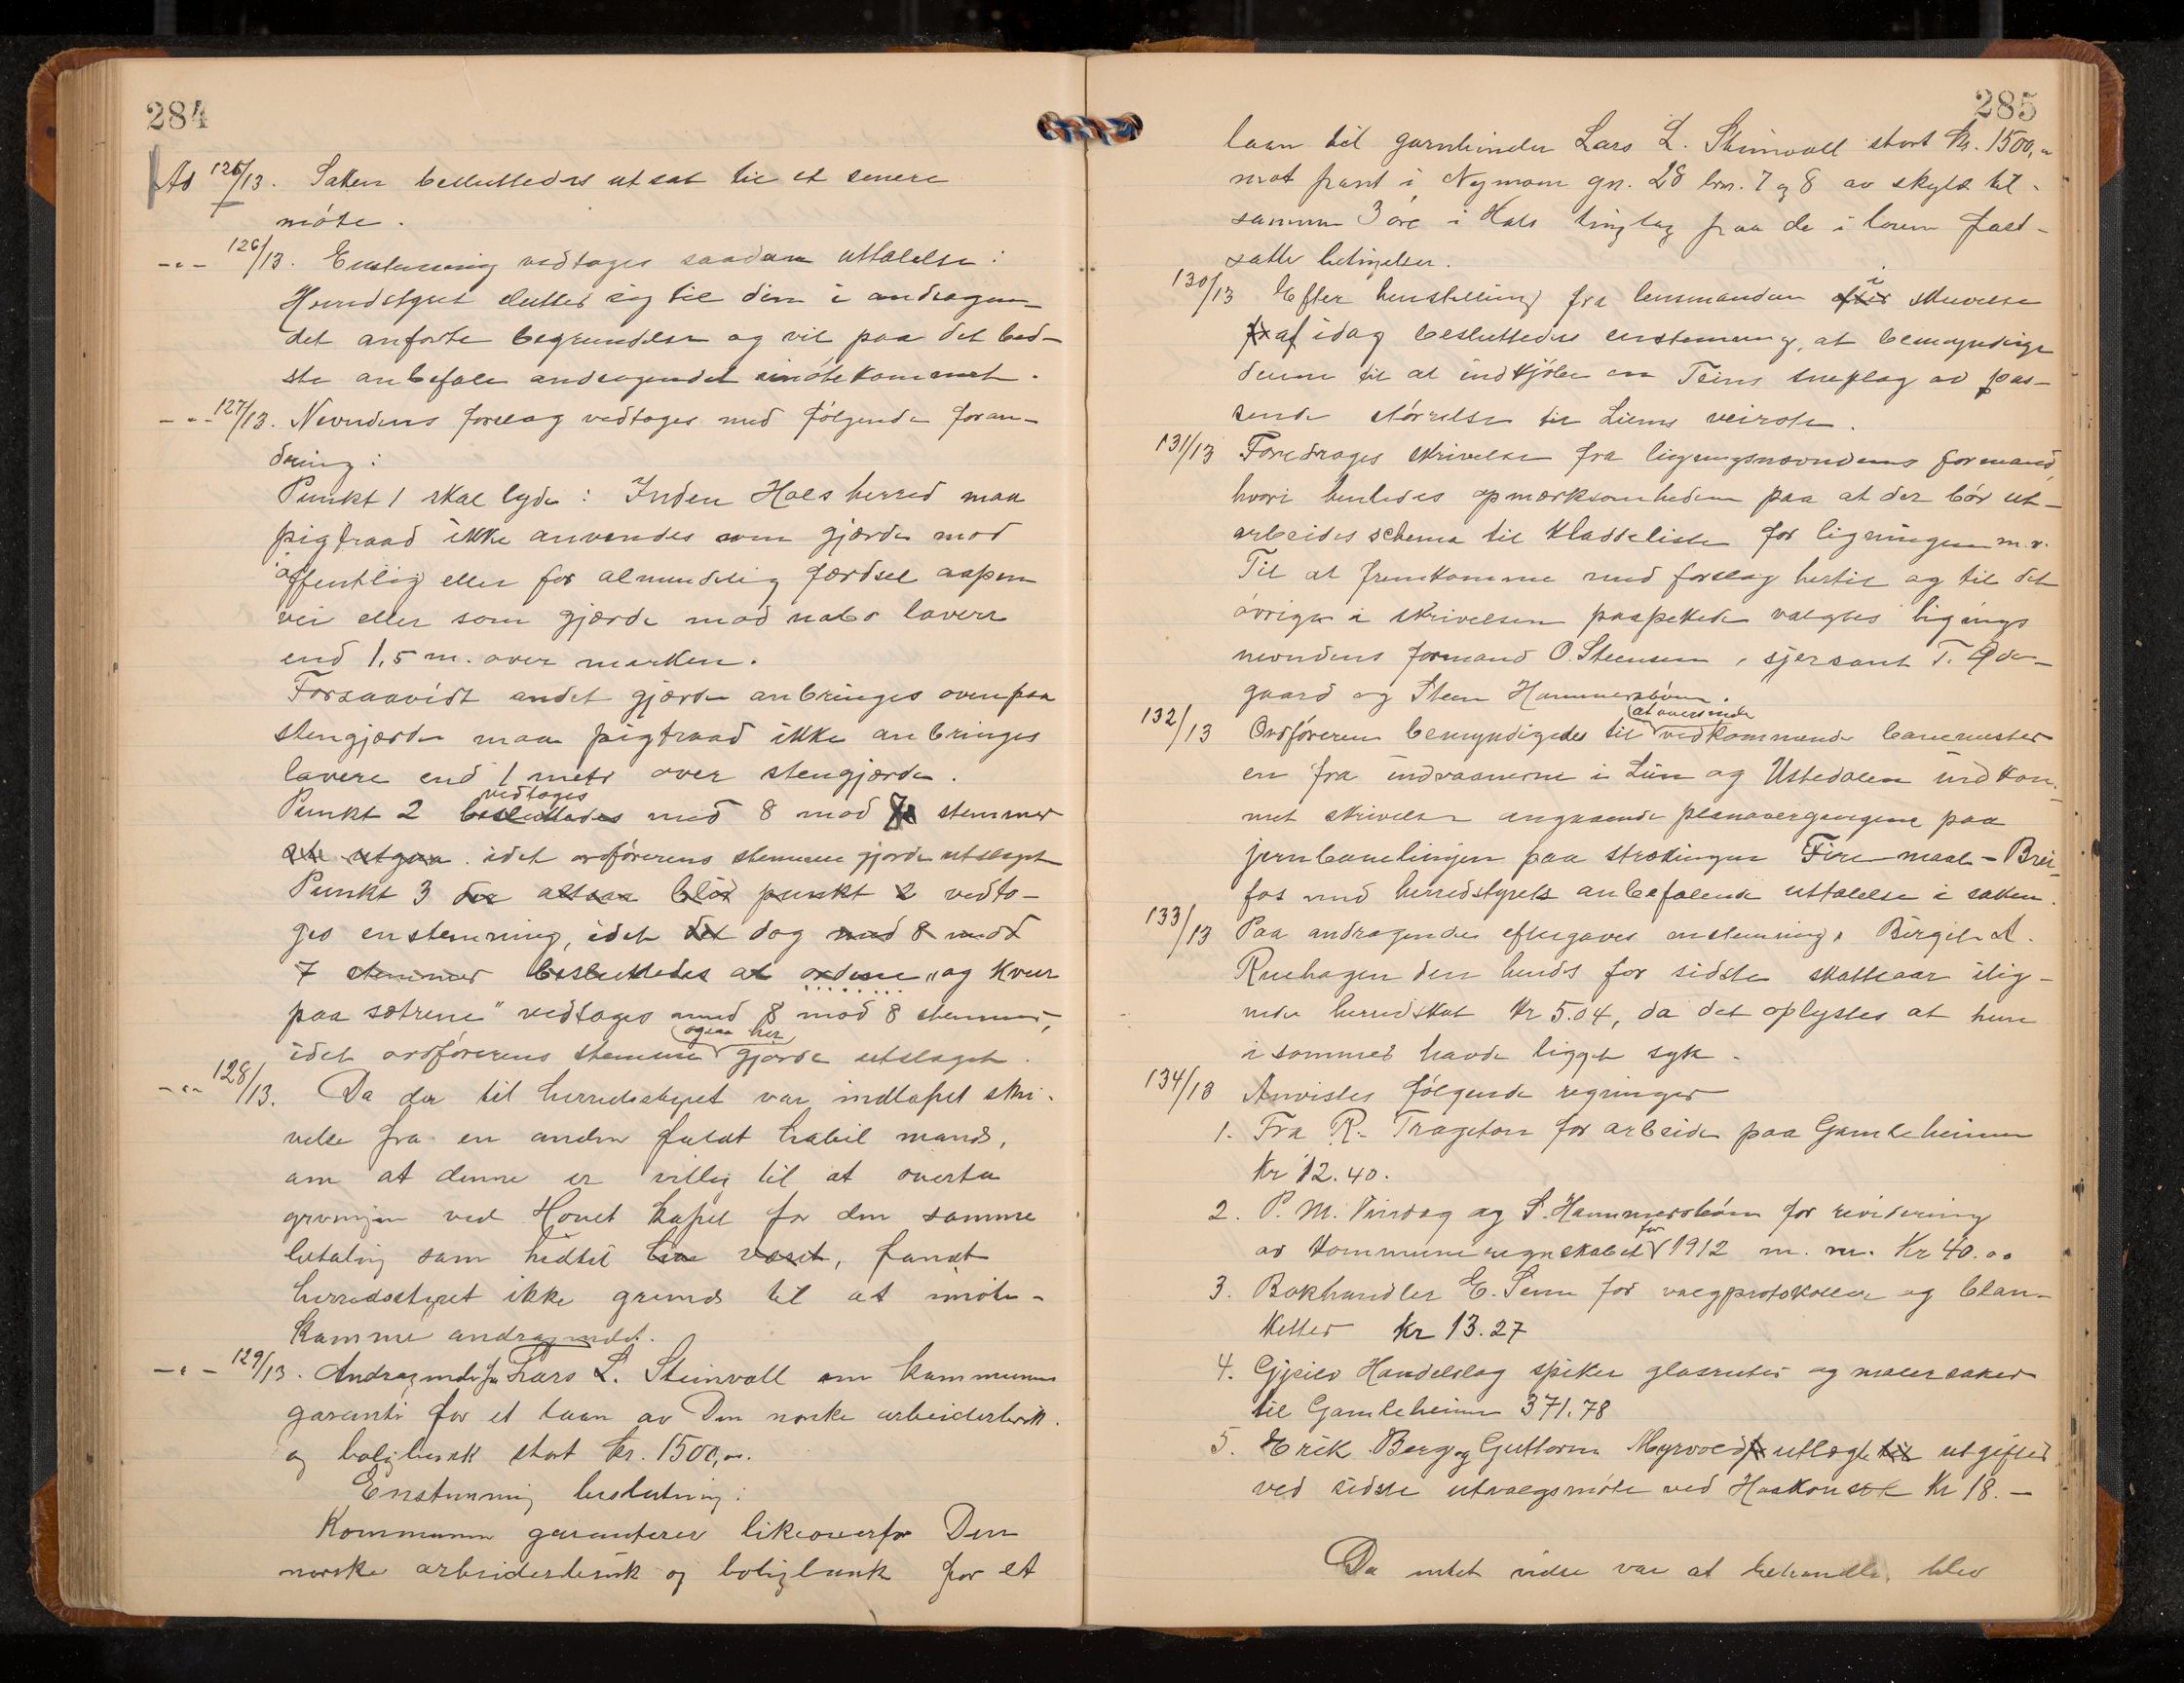 284
Ad 125/13. Saken besluttedes utsat til et senere
møte.
-"- 126/13. Enstemmig vedtages saadan uttalelse:
Herredstyret slutter sig til den i andragen-
det anførte begrundelse og vil paa det bed-
ste anbefale andragendet imøtekommet.
-"- 127/13. Nevndens forslag vedtages med følgende foran-
dring:
Punkt 1 skal lyde: Inden Hols herred maa
pigtraad ikke anvendes som gjærde mod
offentlig eller for almindelig færdsel aapen
vei eller som gjærde mod nabo lavere
end 1,5 m. over marken.
Forsaavidt andet gjærde anbringes ovenpaa
stengjærde maa pigtraad ikke anbringes
lavere end 1 meter over stengjærde.
Punkt 2 besluttedes vedtages med 8 mod stemmer
at utgaa. idet ordførerens stemme gjorde utslaget
Punkt 3 der altsaa blir punkt 2 vedto-
ges enstemmig, idet det dog med 8 mod
7 stemmer besluttedes at ordene "og kveer
paa sætrene" vedtages med 8 mod 8 stemmer,
idet ordførerens stemme ogsaa her gjorde utslaget.
-"- 128/13. Da der til herredsstyret var indløpet skri-
velse fra en anden fuldt habil mand,
om at denne er villig til at overta
gravningen ved Hovet kapel for den samme
betaling som hidtil har været, fandt
herredsstyret ikke grund til at imøte-
komme andragendet.
-"- 129/13. Andragende fra Lars L. Steinvoll om kommunens
garanti for et laan av Den norske arbeiderbruk.
og boligbank stort kr. 1500,00.
Enstemmig beslutning:
Kommunen garanterer likeoverfor Den
norske arbeiderbruk og boligbank for et
285
laan til garnbinder Lars L. Steinvoll stort kr. 1500,00
mot pant i Nymoen gn. 28 brn. 7 og 8 av skyld til-
sammen 3 øre i Hols tinglag paa de i loven fast-
satte betingelser.
130/13 Efter henstilling fra lensmanden efter i skrivelse
fra af idag besluttedes enstemmig, at bemyndige
denne til at indkjøbe en Teins sneplog av pas-
sende størrelse til Liens veirote.
131/13 Foredrages skrivelse fra ligningsnevndens formand,
hvori henledes opmerksomheden paa at der bør ut-
arbeides schema til kladdeliste for ligningen m.v.
Til at fremkomme med forslag hertil og til det
øvrige i skrivelsen paapekede valgtes lignings
nevndens formand O. Steensen, sjersant T. Øde-
gaard og Steen Hammersbøen.
132/13 Ordføreren bemyndigedes til at oversende vedkommende banemester
en fra indvaanerne i Lien og Ustedalen indkom-
met skrivelse angaaende planovergangene paa
jernbanelinjen paa strækningen Fire-maal - Brei-
fos med herredstyrets anbefalende uttalelse i saken.
133/13 Paa andragende eftergaves enstemmig Birgit A.
Ruehagen den hende for sidste skatteaar ilig-
nede herredskat Kr 5.04, da det oplystes at hun
i sommer havde ligget syk.
134/13 Anvistes følgende regninger
1. Fra R. Trageton for arbeide paa Gamleheimen
Kr 12.40.
2. P. M. Tinsdag og S. Hammersbøen for revidering
av kommuneregnskabet for 1912 m. m. Kr 40.00
3. Bokhandler E. Senn for valgprotokoller og blan-
ketter kr 13.27
4. Gjeilo Handelslag spiker glasruter og malersaker
til Gamleheimen 371.78
5. Erik Berg og Guttorm Myrvold utlægte til utgifter
ved sidste utvalgsmøte ved Haakonset Kr 18.-
Da intet videre var at behandle, blev